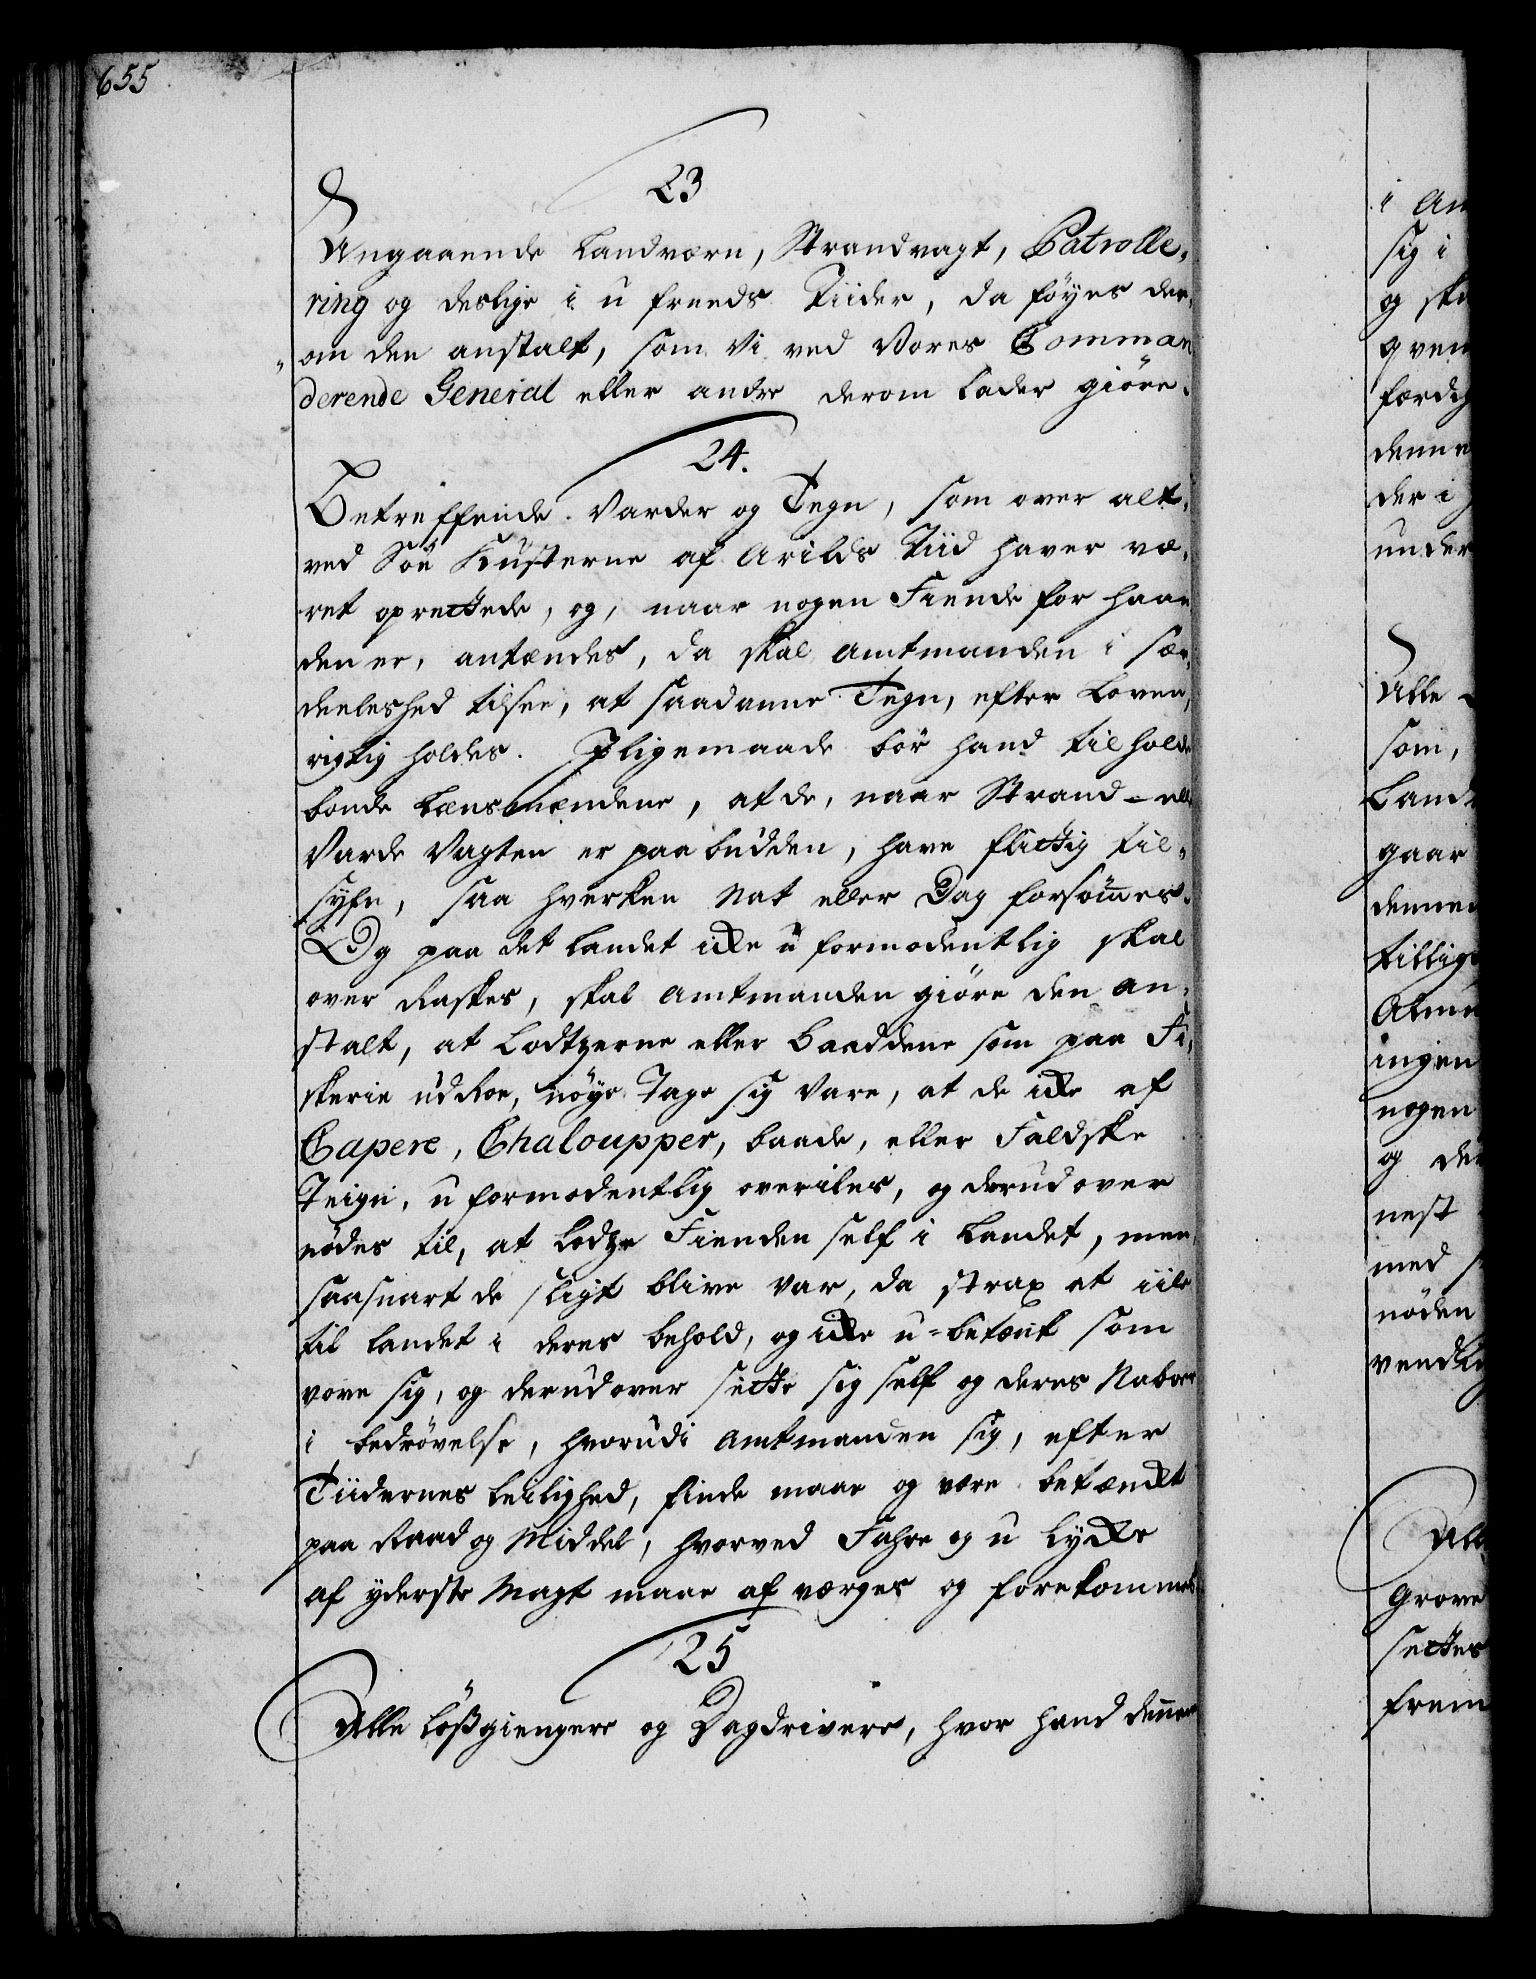 655
23
Angaaende Landværn, Strandvagt, Patrolle,
ring og deslige i u freeds Tiider, da føyes der,
om den anstalt, som Vi ved Vores Comman
derende General eller andre derom lader giøre.
24.
Betreffende Varder og Tegn, som over alt,
ved Söe Kùsterne af Arilds Tiid haver væ,
ret oprettede, og, naar nogen Fiende for haan
den er, antændes, da skal Amtmanden i sær,
deeleshed tilsee, at saadanne Tegn, efter Loven,
rigtig holdes. Jligemaade bör hand tilholde
bonde Lænsmændene, at de, naar Strand = eller
Varde Vagten er paa bùdden, have flittig til,
syfn, saa hverken Nat eller Dag forsömes.
Og paa det Landet icke ù formodentlig skal
over Raskes, skal Amtmanden giöre den an,
stalt, at Lodtzerne eller Baaddene som paa Fi,
skerie ùd Roe, nöye Tage sig Vare, at de icke af
Capere, Chaloupper, baade, eller Faldske
Teign, u formodentlig overiles, og derud over
nödes til, at Lodtze Fienden self i Landet, men
saasnart de sligt blive var, da strax at iile
til Landet i deres behold, og icke u=betænk som
vove sig, og derùdover sette sig self og deres Naboer
i bedrövelse, hvorùdi Amtmanden sig, efter
Tiidernes Leilighed, finde maae og være betænckt
paa Raad og Middel, hvorved Fahre og u Lycke
af yderste Magt maae af værges og forekommes
25
Alle Lößgiengere og Dagdrivere, hvor hand dennem
i Am
sig i
og ska
qven
færdig
denne
der i
under
Alle
som,
Land
gaar
dennem
tillig
Almu
ingen
nogen
og de
nest
med
nøden
vendig
All
Grove
settes
frem